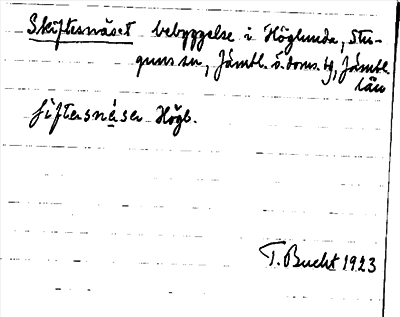 Skiftesnäset bebyggelse i Höglunda, Stu-
guns sn, Jämtl. ö. doms. tg, Jämtl.
län
ʃiftəsnἕsə Högl.
T. Bucht 1923